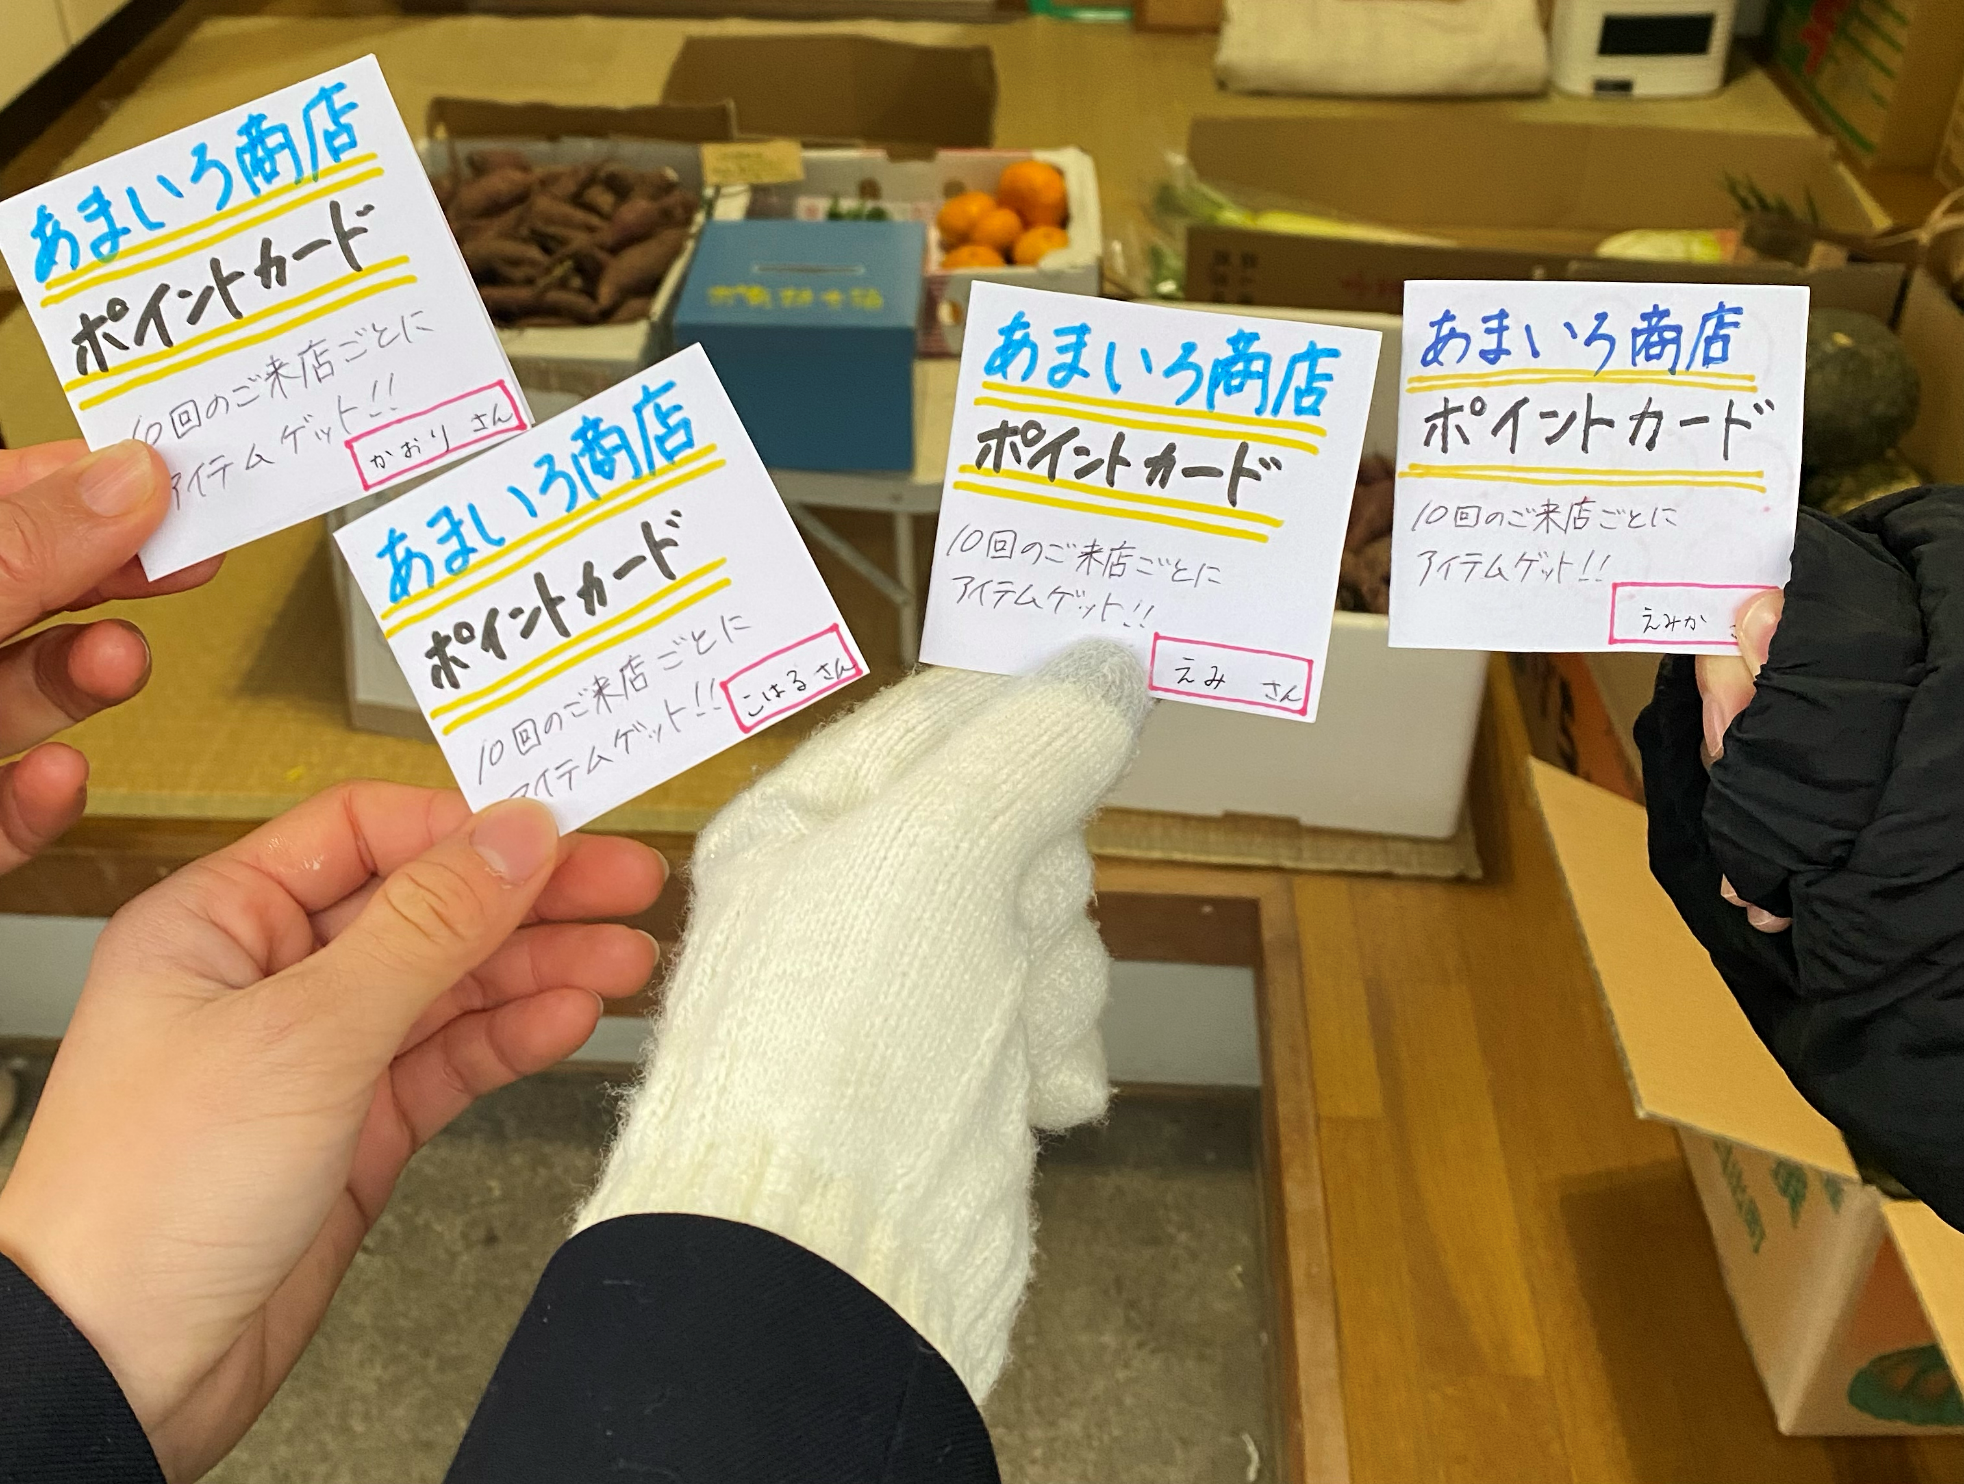 あまいろ商店
ポイントカード
10回のご来店ごとに
アイテムゲット!!
かおり さん
あまいろ商店
ポイントカード
10回のご来店ごとに
アイテムゲット!!
こはる さん
あまいろ商店
ポイントカード
10回のご来店ごとに
アイテムゲット!!
えみ さん
あまいろ商店
ポイントカード
10回のご来店ごとに
アイテムゲット!!
えみか